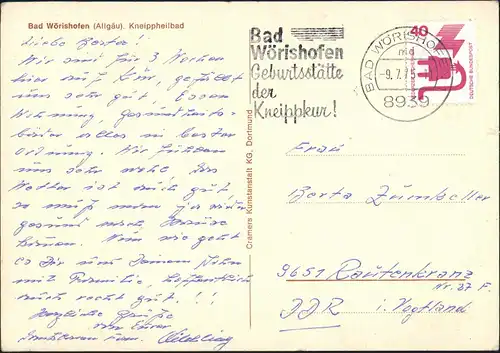 Bad Wörishofen (Allgäu). Kneippheilbad
Liebe Berta!
Wir sind für 3 Wochen
hier zur Kur, gefällt
uns sehr gut. Essen
Wohnung, Gesundheits-
bäder alles in bester
Ordnung. Wir fühlen
uns sehr wohl. Das
Wetter ist auch gut
so muß man ja wieder
gesund nach Hause
können. Nun wie geht
es Dir und Deinem
mit Familie, hoffentlich
auch recht gut!!!
Herzliche Grüße
von Eurer
Cramers Kunstanstalt KG, Dortmund
Bad
Wörishofen
Geburtsstätte
der
Kneippkur!
BAD WÖRISHOFEN
-9.7.75
8939
40
DEUTSCHE BUNDESPOST
Frau
Berta Zumkeller
9651 Rautenkranz
Nr. 37 F.
DDR i. Vogtland